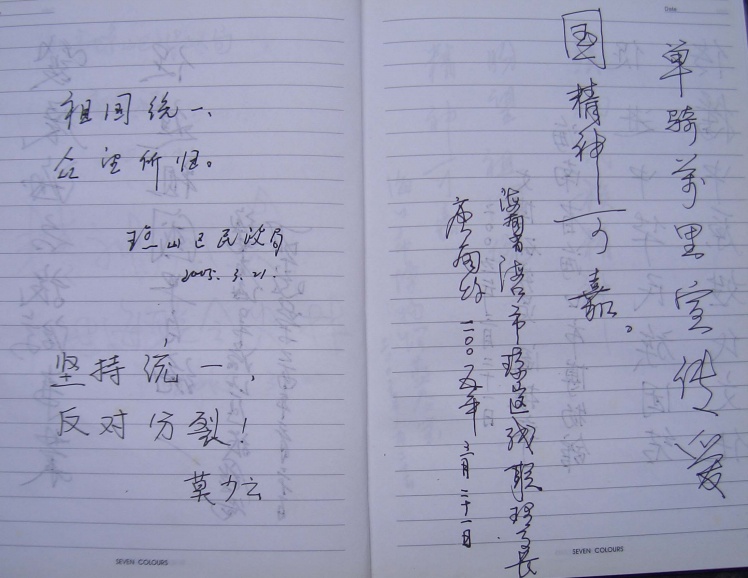 祖国统一、
众望所归。
琼山区民政局
2005. 3. 21.
坚持统一,
反对分裂!
莫少云
SEVEN COLOURS
Date
单骑万里宣传爱
国精神可嘉。
海南省海口市琼山区残联理事长
二00五年三月二十一日
SEVEN COLOURS